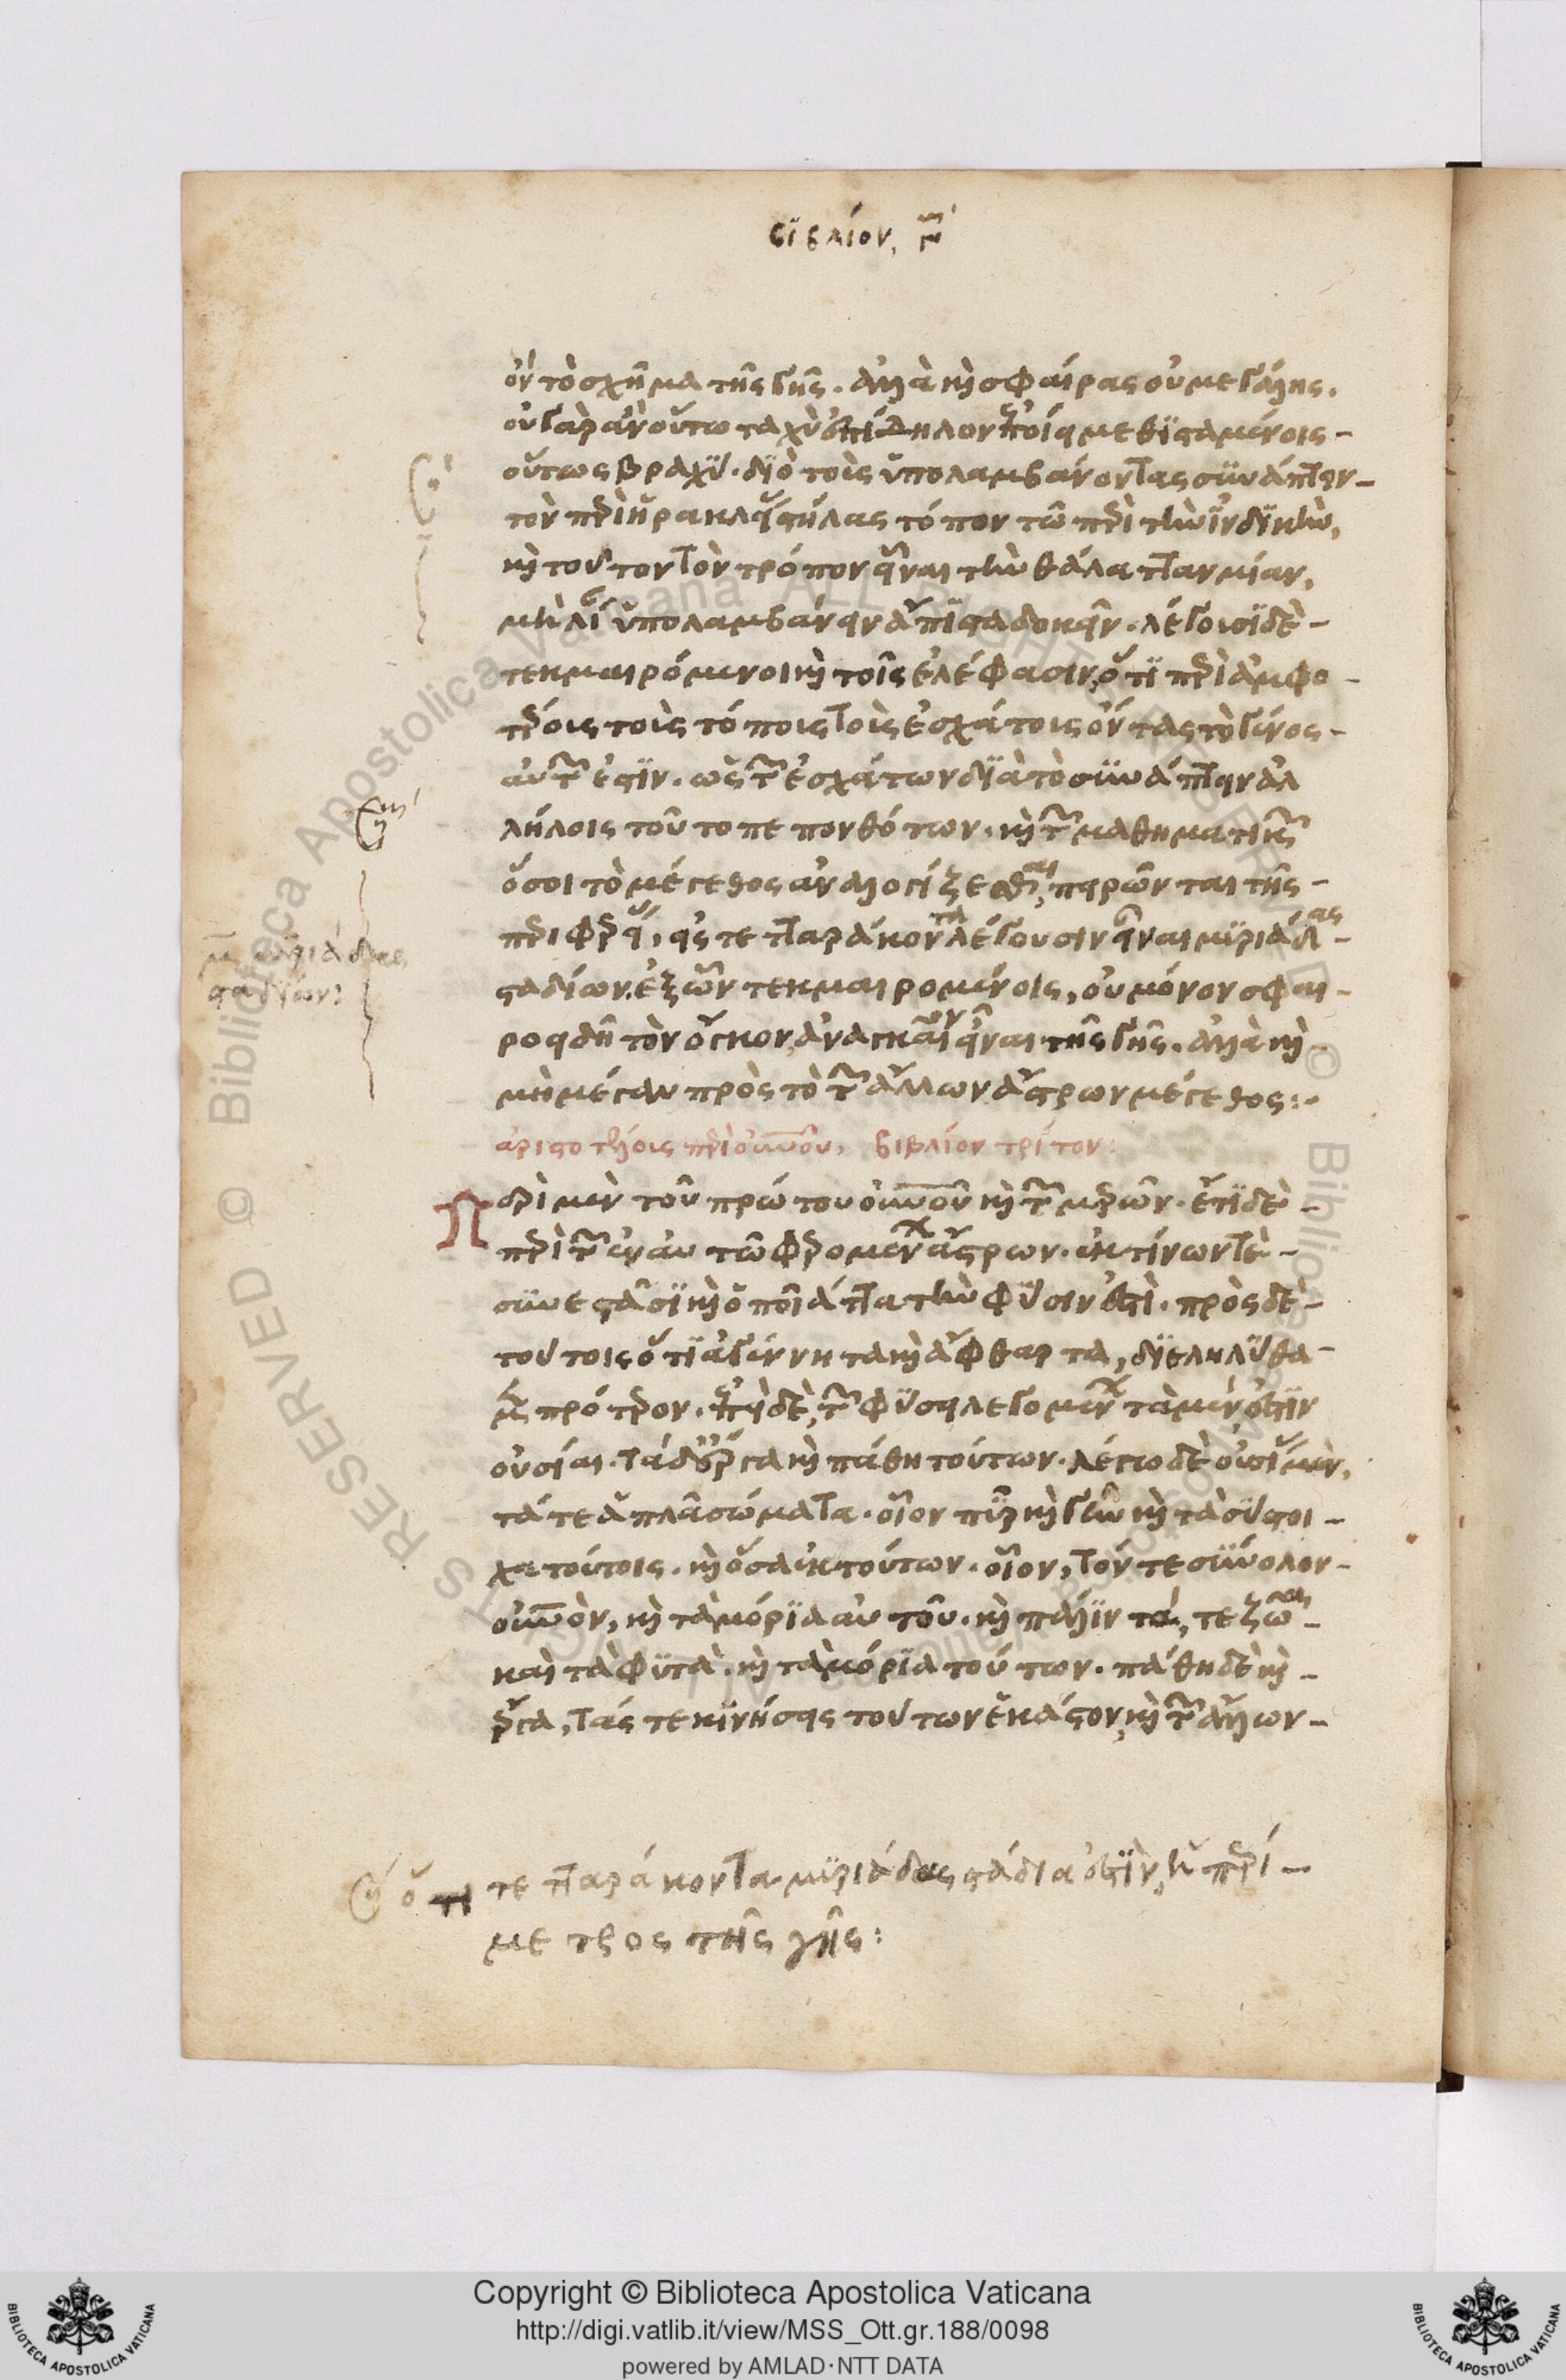 βιβλίον, γ´
ὂν τὸ σχῆμα τῆς γῆς. ἀλλὰ καὶ σφαίρας οὐ μεγάλης.
οὐ γὰρ ἂν οὕτω ταχὺ ἐπίδηλον ἐποίει μεθισταμένοις
οὕτως βραχύ. διὸ τοὺς ὑπολαμβάνοντας συνάπτειν
τὸν περὶ ἡρακλείους στήλας τόπον τῶ περὶ τὴν ἰνδικὴν,
καὶ τοῦτον τὸν τρόπον εἶναι τὴν θάλατταν μίαν,
μὴ λίαν ὑπολαμβάνειν ἄπιστα δοκεῖν. λέγουσι δὲ
τεκμαιρόμενοι καὶ τοῖς ἐλέφασιν, ὅτι περὶ ἀμφο
τέρους τοὺς τόπους τοὺς ἐσχάτους ὄντας τὸ γένος
αὐτῶν ἐστιν. ὡς τῶν ἐσχάτων διὰ τὸ συνάπτειν ἀλ
λήλοις τοῦτο πεπονθότων. καὶ τῶν μαθηματικῶν
ὅσοι τὸ μέγεθος ἀναλογίζεσθαι, πειρῶνται τῆς
περιφερείας, εἰς τετταράκοντα λέγουσιν εἶναι μυριάδας
σταδίων. ἐξ ὧν τεκμαιρομένοις, οὐ μόνον σφαι
ροειδῆ τὸν ὄγκον, ἀναγκαῖον εἶναι τῆς γῆς. ἀλλὰ καὶ
μὴ μέγαν πρὸς τὸ τῶν ἄλλων ἄστρων μέγεθος:
ἀριστοτέλους περὶ οὐνοῦ, βιβλίον τρίτον:
Περὶ μὲν τοῦ πρώτου οὐνοῦ καὶ τῶν μερῶν. ἔτι δὲ
περὶ τῶν ἐν αὐτῶ φερομένων ἄστρων. ἐκ τίνων τὲ
συνεστᾶσι καὶ ὁποῖ' ἄττα τὴν φύσιν ἐστὶ. πρὸς δὲ
τούτοις ὅτι ἀγέννητα καὶ ἄφθαρτα, διεληλύθα
μεν πρότερον. ἐπεὶ δὲ, τῶν φύσει λεγομένων τὰ μέν ἐστιν
οὐσίαι. τὰ δ' ἔργα καὶ πάθη τούτων. λέγω δὲ οὐσίας μὲν,
τά τε ἁπλᾶ σώματα. οἷον πῦρ καὶ γῆν καὶ τὰ σύστοι
χα τούτοις. καὶ ὅσα ἐκ τούτων. οἷον, τόν τε σύνολον
οὐνὸν, καὶ τὰ μόρια αὐτοῦ. καὶ πάλιν τά, τε ζῶα
καὶ τὰ φυτὰ. καὶ τὰ μόρια τούτων. πάθη δὲ καὶ
ἔργα, τάς τε κινήσεις τούτων ἑκάστου, καὶ τῶν ἄλλων
μ μυριάδες
σταδίων:
ὅτι τετταράκοντα μυριάδας στάδια ἐστὶν, ἡ περί
μετρος τῆς γῆς:
Copyright © Biblioteca Apostolica Vaticana
http://digi.vatlib.it/view/MSS_Ott.gr.188/0098
powered by AMLAD·NTT DATA
BIBLIOTECA APOSTOLICA VATICANA
BIBLIOTECA APOSTOLICA VATICANA